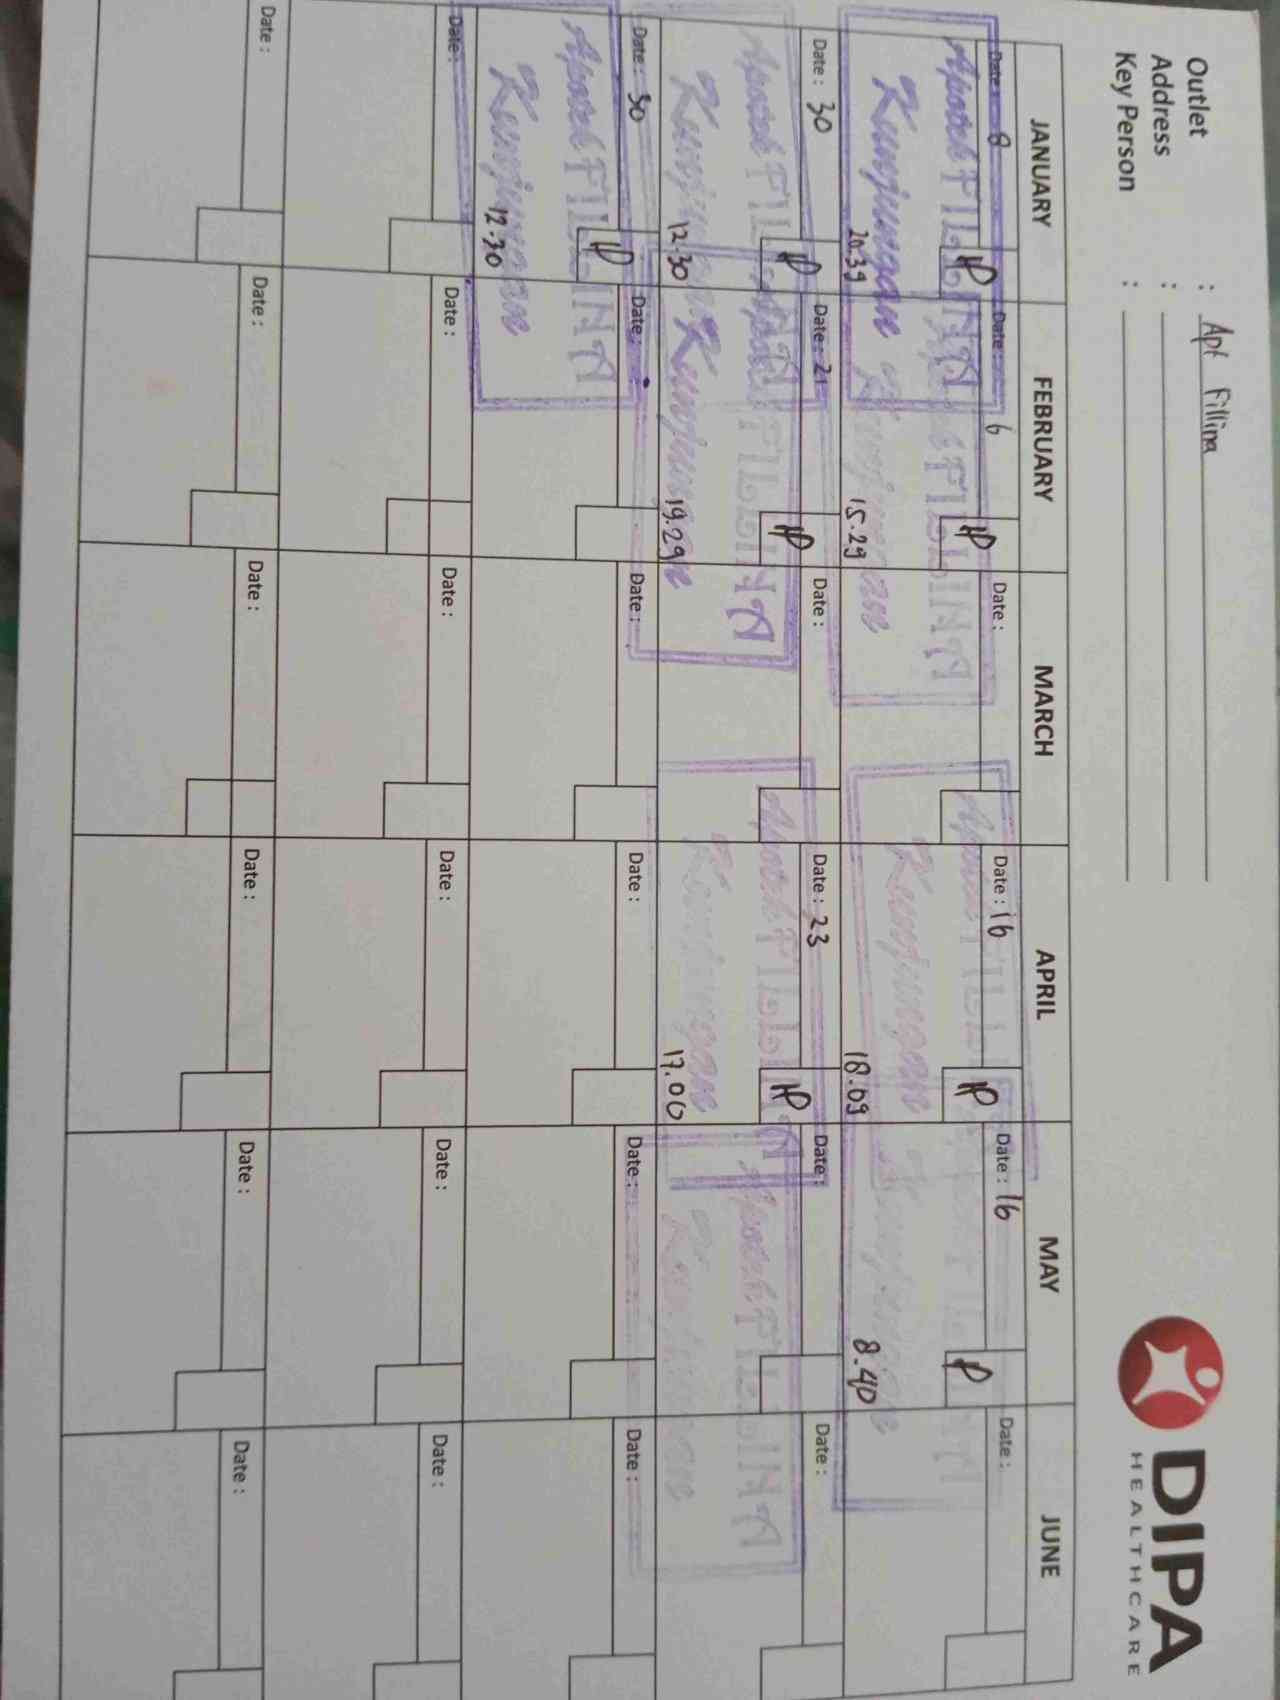 DIPA
HEALTHCARE
Outlet : Apt Fillina
Address :
Key Person :
JANUARY FEBRUARY MARCH APRIL MAY JUNE
Date: 8 Date: 6 Date: Date: 16 Date: 16 Date:
Apotek FILLINA Apotek FILLINA Apotek FILLINA
Kunjungan Kunjungan Kunjungan Kunjungan
20.39 15.29 18.09 8.40
Date: 30 Date: 21 Date: Date: 23 Date: Date:
Apotek FILLINA Apotek FILLINA Apotek FILLINA Apotek FILLINA
Kunjungan Kunjungan Kunjungan Kunjungan
12.30 19.29 17.00
Date: 30 Date: Date: Date: Date: Date:
Apotek FILLINA
Kunjungan
12.30
Date: Date: Date: Date: Date: Date:
Date: Date: Date: Date: Date: Date: